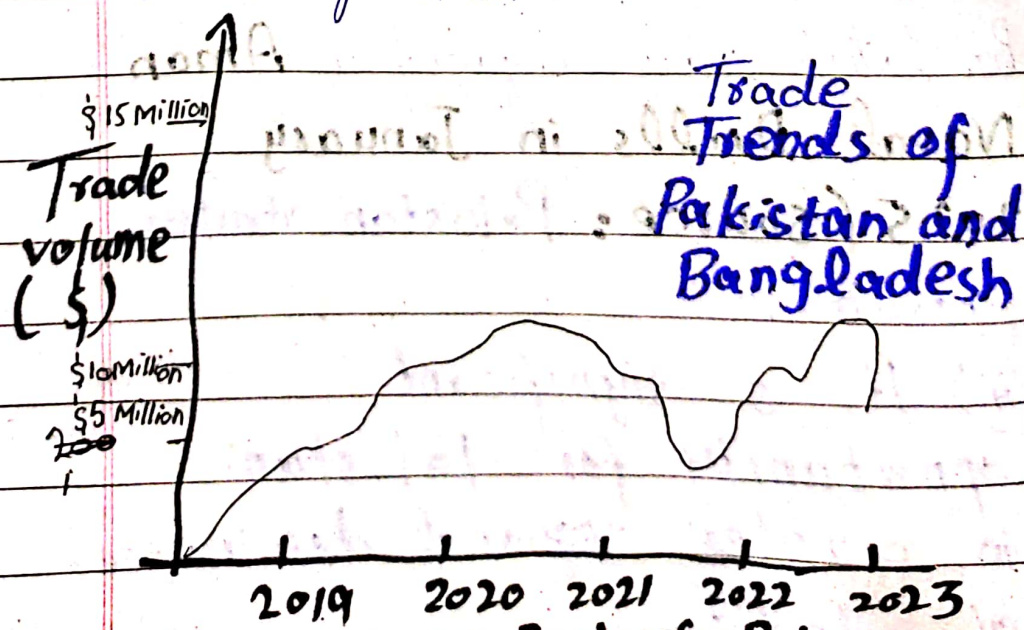 Trade
Trends of
Pakistan and
Bangladesh
$15 Million
Trade
volume
($)
$10 Million
$5 Million
2019 2020 2021 2022 2023